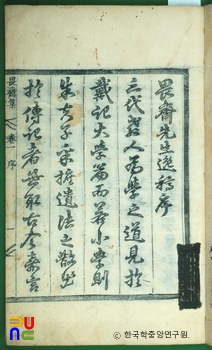 畏齋先生遺稿序
三代教人爲學之道見於
戴記大學篇而若小學則
朱夫子采摭遺法之散出
於傳記者無取古今嘉言
畏齋集 卷 序
한국학중앙연구원